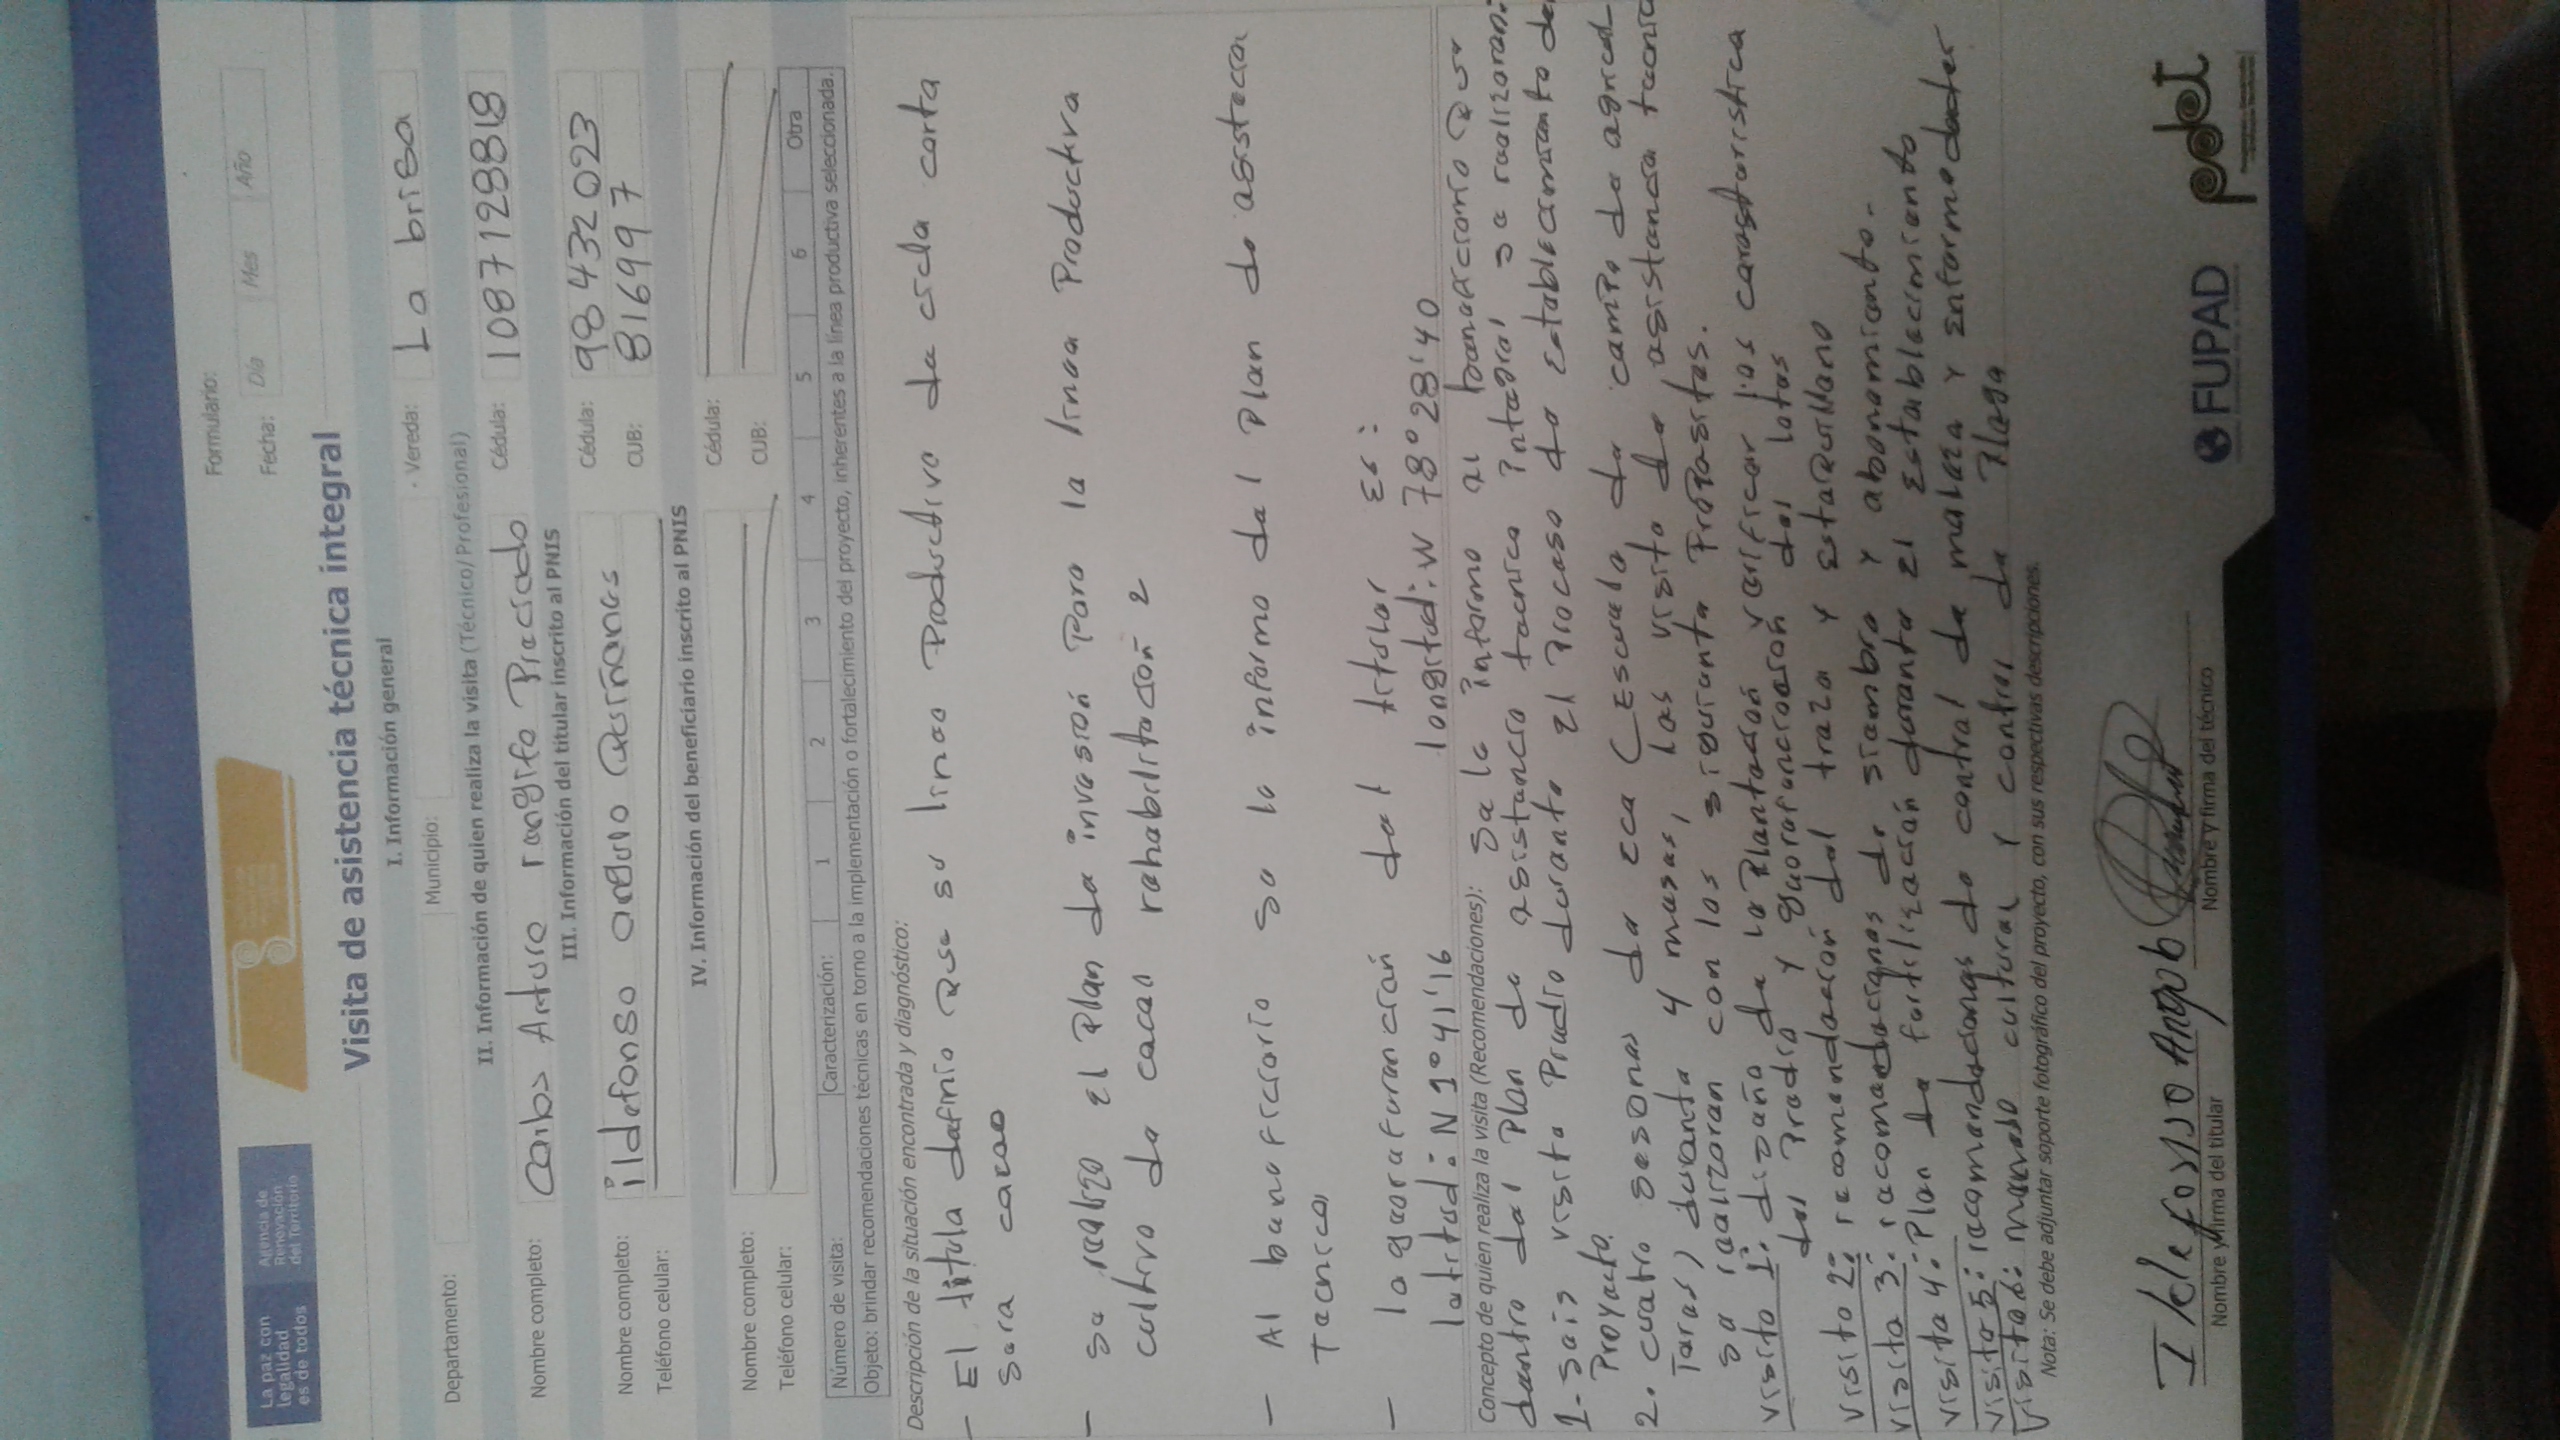 La paz con
legalidad
es de todos
Agencia de
Renovación
del Territorio
Formulario:
Fecha: Día Mes Año
Visita de asistencia técnica integral
I. Información general
Departamento: Municipio: Vereda: La brisa
II. Información de quien realiza la visita (Técnico/Profesional)
Nombre completo: Carlos Arturo rangifo Praciado Cédula: 1087128818
III. Información del titular inscrito al PNIS
Nombre completo: ildefonso angulo Quiñones Cédula: 98432023
Teléfono celular: CUB: 816997
IV. Información del beneficiario inscrito al PNIS
Nombre completo: Cédula:
Teléfono celular: CUB:
Número de visita: Caracterización: 1 2 3 4 5 6 Otra
Objeto: brindar recomendaciones técnicas en torno a la implementación o fortalecimiento del proyecto, inherentes a la línea productiva seleccionada.
Descripción de la situación encontrada y diagnóstico:
- El titula dafinio Que su linao Productiva da cicla corta
sara cacao
- sa realizo el Plan da invasión Para la linaa Productiva
cultivo da cacao rahabilitación 2
- Al banaficiario sa lo informo dal Plan do asistecia
Tacnica,
- la gaorafarancián dal titular Es:
latitud: N 1°41'16 longitud: W 78°28'40
Concepto de quien realiza la visita (Recomendaciones): sa la informo al banaficiario Qur
dantro dal Plan da asistancia tacnica intagral sa raalizaran:
1- sais visita Pradio duranta El Procaso da Establacimianto dal
Proyacto.
2. cuatro sasonas da eca (Escuala da campo da agricul
Taras) duranta 4 masas, las visita da asistancia tacnica
sa raalizaran con los siguianta Propasitas.
visita 1: disaño da la Plantación varificar las caractaristica
dal Pradio y guorafanciación dal lotas
visita 2: racomandación dal traza y Estaquillano
visita 3: racomandacianas da siambra y abonamianto.
visita 4: Plan da fartilización duranta El Establacimianto
visita 5: racamandacionas da control da malaza y Enfarmadadas
visita 6: manado cultural y control da Plaga
Nota: Se debe adjuntar soporte fotográfico del proyecto, con sus respectivas descripciones.
Ildefonso Angulo
Nombre y firma del titular Nombre y firma del técnico
FUPAD pdet